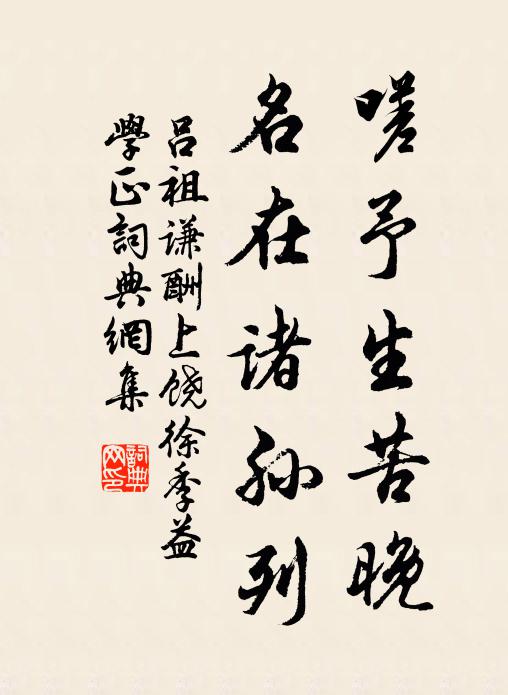 嗟予生苦晚
名在诸孙列
吕祖谦酬上饶徐季益
學正詞典網集
詞典
网印